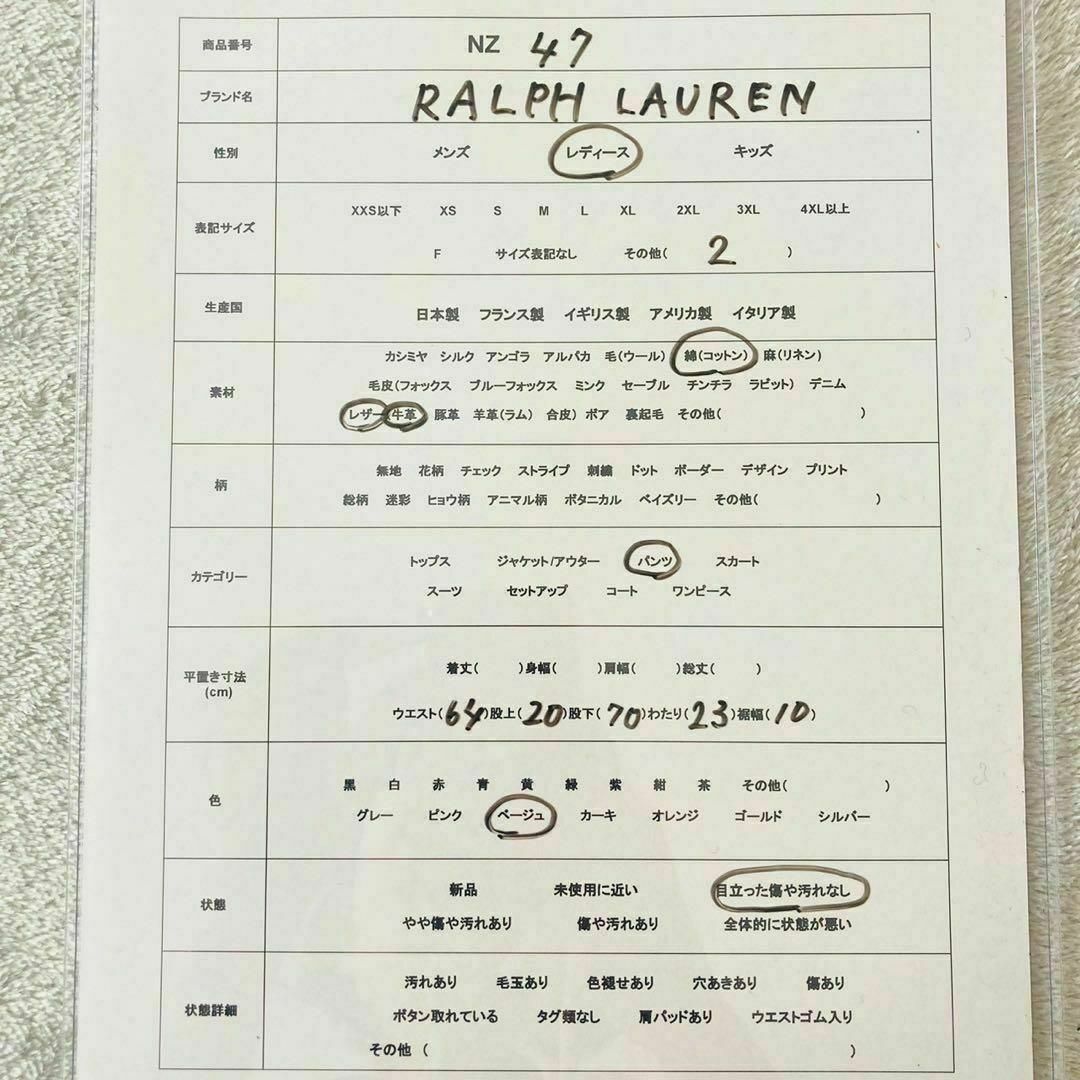 商品番号 NZ 47
ブランド名 RALPH LAUREN
性別 メンズ レディース キッズ
表記サイズ
XXS以下 XS S M L XL 2XL 3XL 4XL以上
F サイズ表記なし その他( 2 )
生産国 日本製 フランス製 イギリス製 アメリカ製 イタリア製
素材
カシミヤ シルク アンゴラ アルパカ 毛(ウール) 綿(コットン) 麻(リネン)
毛皮(フォックス ブルーフォックス ミンク セーブル チンチラ ラビット) デニム
レザー(牛革 豚革 羊革(ラム) 合皮) ボア 裏起毛 その他( )
柄
無地 花柄 チェック ストライプ 刺繍 ドット ボーダー デザイン プリント
総柄 迷彩 ヒョウ柄 アニマル柄 ボタニカル ペイズリー その他( )
カテゴリー
トップス ジャケット/アウター パンツ スカート
スーツ セットアップ コート ワンピース
平置き寸法
(cm)
着丈( )身幅( )肩幅( )総丈( )
ウエスト(64)股上(20)股下(70)わたり(23)裾幅(10)
色
黒 白 赤 青 黄 緑 紫 紺 茶 その他( )
グレー ピンク ベージュ カーキ オレンジ ゴールド シルバー
状態
新品 未使用に近い 目立った傷や汚れなし
やや傷や汚れあり 傷や汚れあり 全体的に状態が悪い
状態詳細
汚れあり 毛玉あり 色褪せあり 穴あきあり 傷あり
ボタン取れている タグ類なし 肩パッドあり ウエストゴム入り
その他 ( )